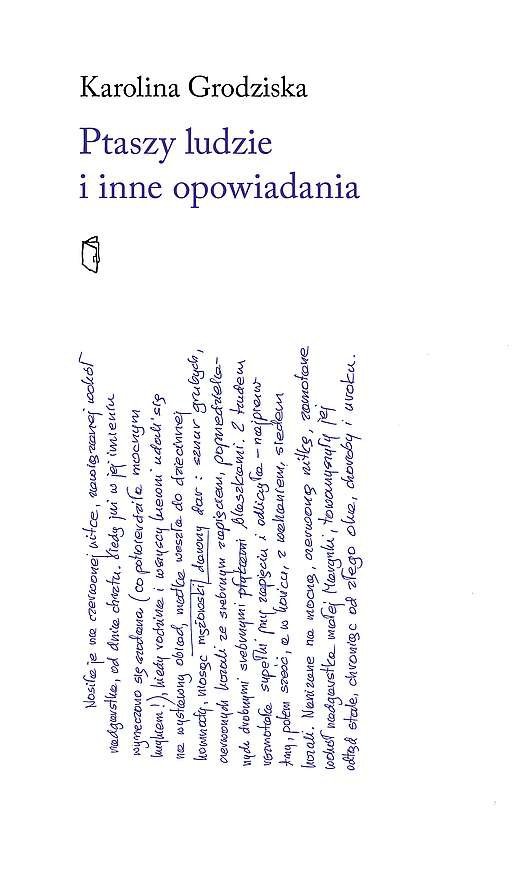 Karolina Grodziska
Ptaszy ludzie
i inne opowiadania
Nosiła je na czerwonej nitce, zawiązanej wokół
nadgarstka, od dnia chrztu. Kiedy już w jej imieniu
wyrzeczono się szatana (co potwierdziła mocnym
krykiem!), kiedy rodzina i wszyscy krewni udali się
na wystawny obiad, matka weszła do dziecinnej
komnaty, niosąc mężowski dawny dar: sznur grubych,
czerwonych korali ze srebrnym zapięciem, poprzedziela-
nych drobnymi srebrnymi blaszkami. Z trudem
rozmotała supełki przy zapięciu i odliczyła – najpierw
trzy, potem sześć, a w końcu, z wahaniem, siedem
korali. Nanizane na mocną, czerwoną nitkę, zamotane
wokół nadgarstka małej Marynki, towarzyszyły jej
odtąd stale, chroniąc od złego oka, choroby i uroku.